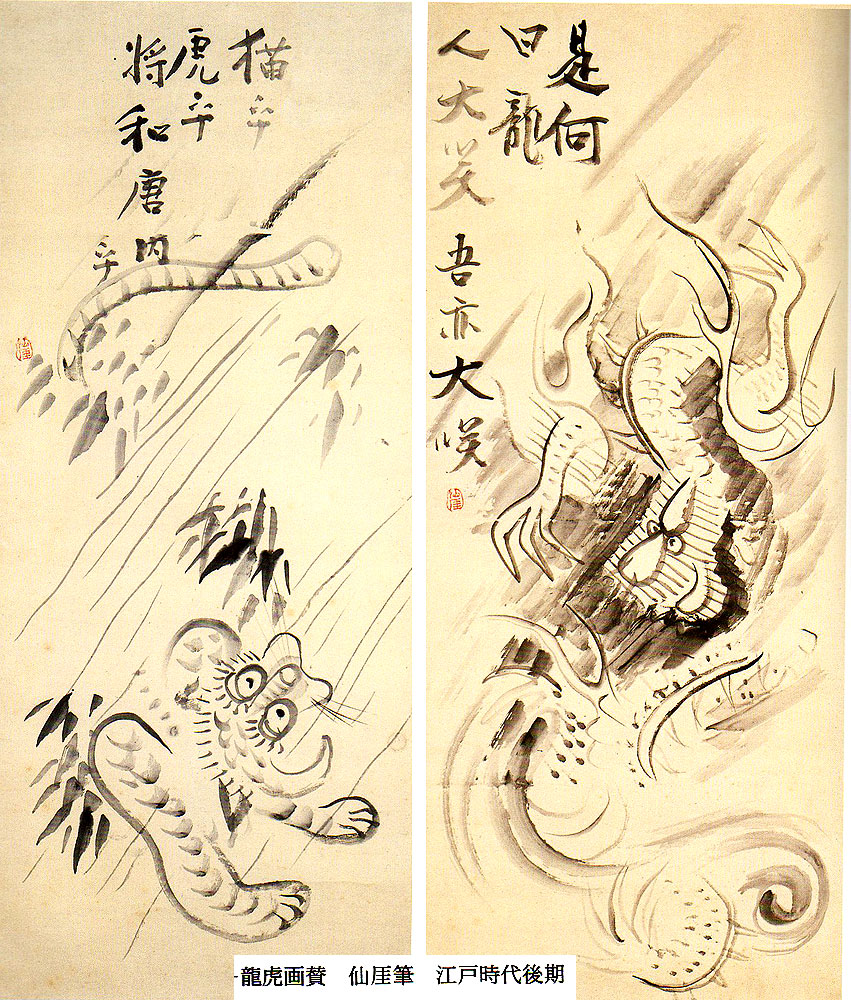 是何
曰龍
人大笑
吾亦大咲
猫乎
虎乎
将和唐内
乎
龍虎画賛　仙厓筆　江戸時代後期